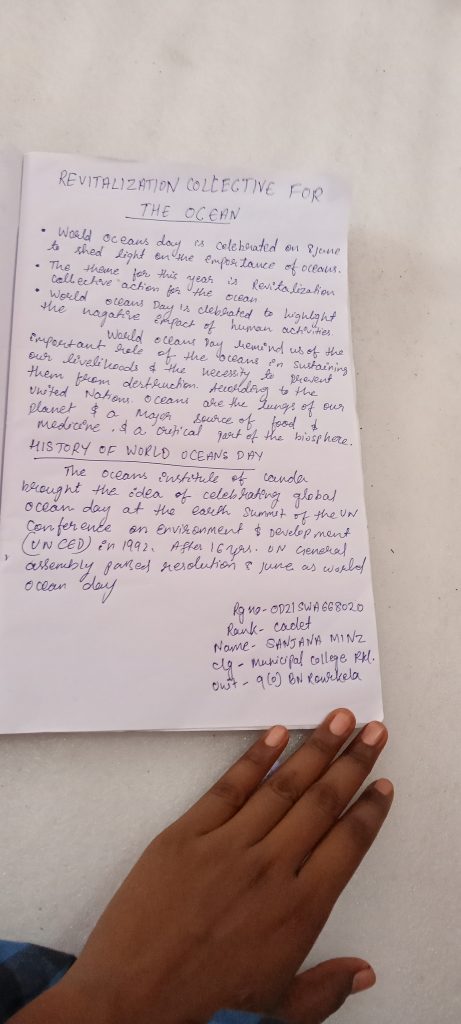 REVITALIZATION COLLECTIVE FOR
THE OCEAN
• World oceans day is celebrated on 8 june
to shed light on the emportance of oceans.
• The theme for this year is Revitalization
collective action for the ocean
• World oceans Day is clebrated to highlight
the nagative empact of human activities.
World oceans Day remind us of the
important role of the oceans in sustaining
our livelihoods & the necessity to prevent
them from destruction. According to the
united Nations. oceans are the lungs of our
planet & a major source of food &
medicine. & a critical part of the biosphere.
HISTORY OF WORLD OCEANS DAY
The oceans institute of canda
brought the idea of celebrating global
ocean day at the earth summit of the UN
conference on environment & development
(UNCED) in 1992. After 16 yrs. UN General
assembly passed resolution 8 june as world
ocean day
Rg no- OD21SWA668020
Rank- cadet
Name- SANJANA MINZ
clg - Municipal college Rkl.
Unit - 9(O) BN Rourkela